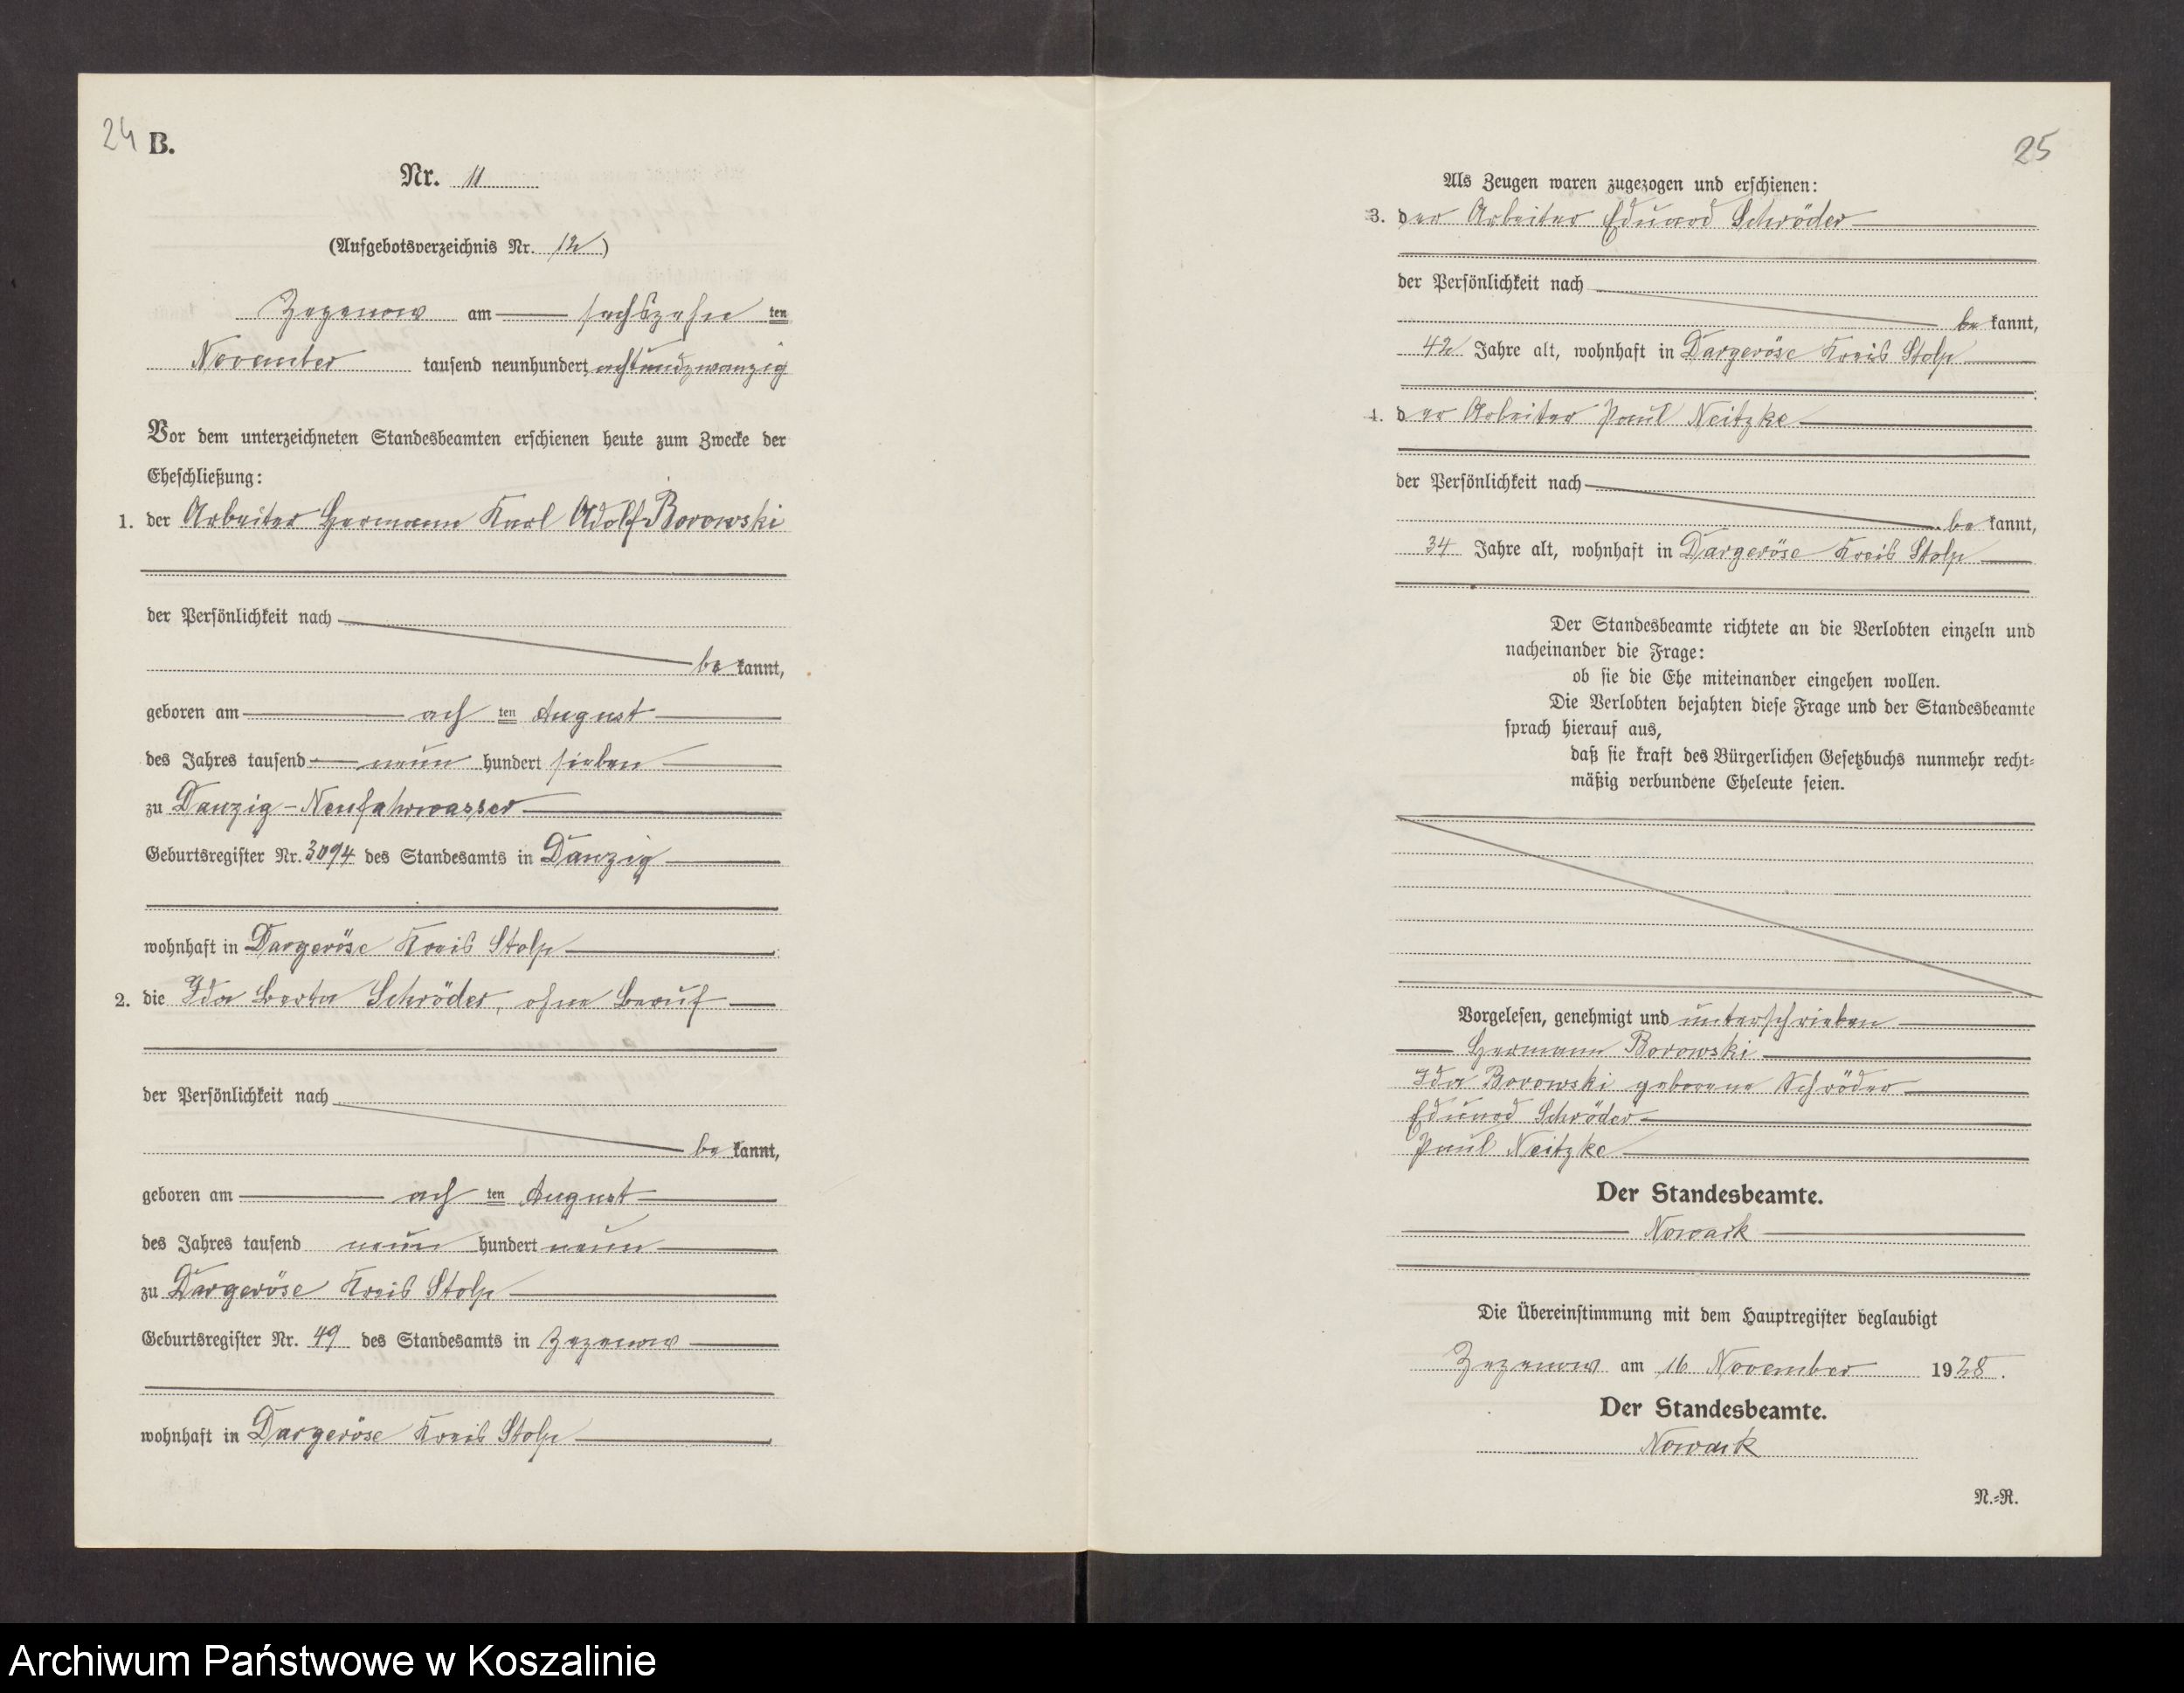 24 B.
Nr. 11
(Aufgebotsverzeichnis Nr. 12)
Zezenow am sechszehn ten
November tausend neunhundert achtundzwanzig
Vor dem unterzeichneten Standesbeamten erschienen heute zum Zwecke der
Eheschließung:
1. der Arbeiter Hermann Karl Adolf Borowski
der Persönlichkeit nach
be kannt,
geboren am ach ten August
des Jahres tausend neun hundert sieben
zu Danzig-Neufahrwasser
Geburtsregister Nr. 3094 des Standesamts in Danzig
wohnhaft in Dargeröse Kreis Stolp
2. die Ida Berta Schröder, ohne Beruf
der Persönlichkeit nach
be kannt,
geboren am ach ten August
des Jahres tausend neun hundert neun
zu Dargeröse Kreis Stolp
Geburtsregister Nr. 49 des Standesamts in Zezenow
wohnhaft in Dargeröse Kreis Stolp
25
Als Zeugen waren zugezogen und erschienen:
3. der Arbeiter Eduard Schröder
der Persönlichkeit nach
be kannt,
42 Jahre alt, wohnhaft in Dargeröse Kreis Stolp
4. der Arbeiter Paul Neitzke
der Persönlichkeit nach
be kannt,
34 Jahre alt, wohnhaft in Dargeröse Kreis Stolp
Der Standesbeamte richtete an die Verlobten einzeln und
nacheinander die Frage:
ob sie die Ehe miteinander eingehen wollen.
Die Verlobten bejahten diese Frage und der Standesbeamte
sprach hierauf aus,
daß sie kraft des Bürgerlichen Gesetzbuchs nunmehr recht-
mäßig verbundene Eheleute seien.
Vorgelesen, genehmigt und unterschrieben
Hermann Borowski
Ida Borowski geborene Schröder
Eduard Schröder
Paul Neitzke
Der Standesbeamte.
Nowack
Die Übereinstimmung mit dem Hauptregister beglaubigt
Zezenow am 16 November 1928.
Der Standesbeamte.
Nowack
N.-R.
Archiwum Państwowe w Koszalinie